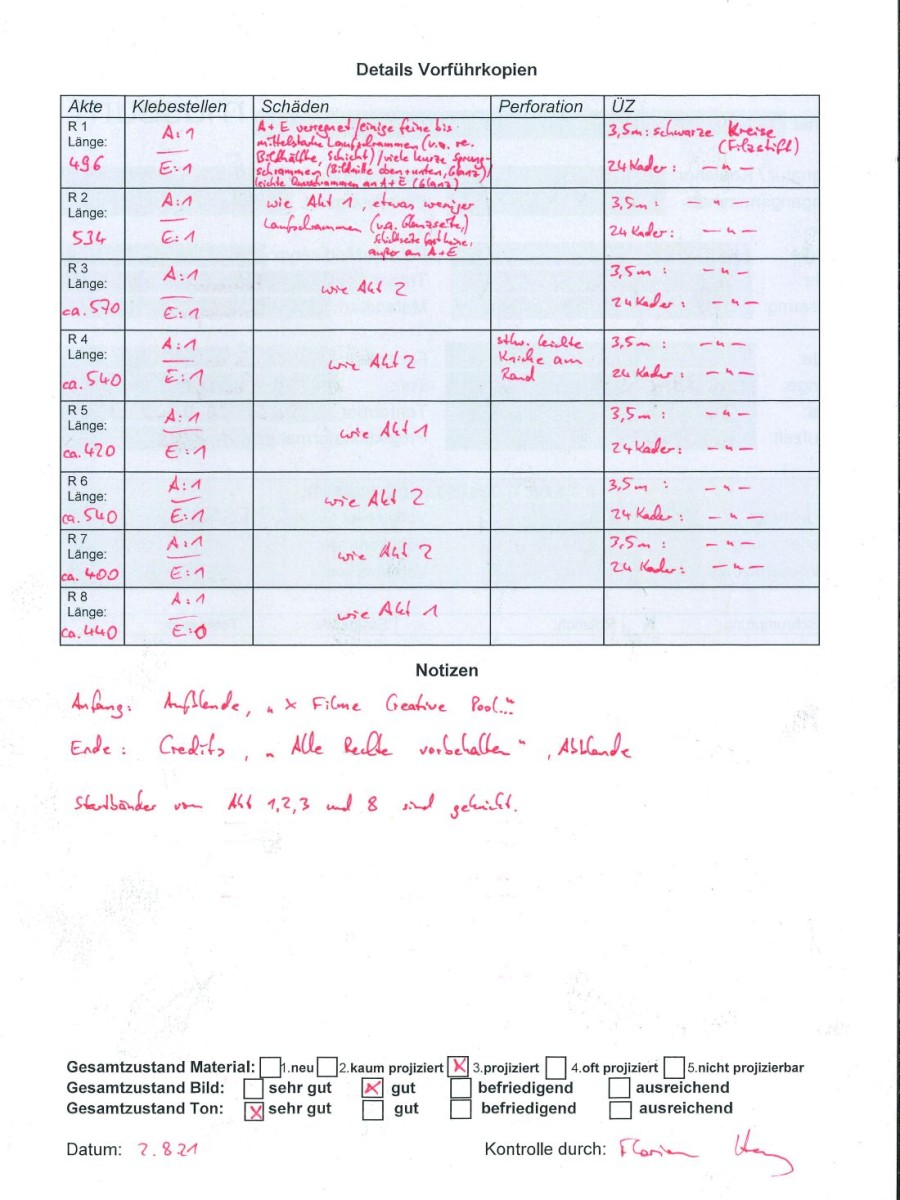 Details Vorführkopien
Akte Klebestellen Schäden Perforation ÜZ
R 1
Länge:
496
A: 1
E: 1
A + E verregnet / einige feine bis
mittelstarke Laufschrammen (v.a. re.
Bildhälfte, Schicht) / viele kurze Sprung-
schrammen (Bildmitte oben + unten, Glanz) /
leichte Querschrammen an A + E (Glanz)
3,5m: schwarze Kreise
(Filzstift)
24 Kader: – " –
R 2
Länge:
534
A: 1
E: 1
wie Akt 1, etwas weniger
Laufschrammen (v.a. Glanzseite,)
Schichtseite fast keine,
außer an A + E
3,5m: – " –
24 Kader: – " –
R 3
Länge:
ca. 570
A: 1
E: 1
wie Akt 2
3,5m: – " –
24 Kader: – " –
R 4
Länge:
ca. 540
A: 1
E: 1
wie Akt 2
stlw. leichte
Knicke am
Rand
3,5m: – " –
24 Kader: – " –
R 5
Länge:
ca. 420
A: 1
E: 1
wie Akt 1
3,5m: – " –
24 Kader: – " –
R 6
Länge:
ca. 540
A: 1
E: 1
wie Akt 2
3,5m: – " –
24 Kader: – " –
R 7
Länge:
ca. 400
A: 1
E: 1
wie Akt 2
3,5m: – " –
24 Kader: – " –
R 8
Länge:
ca. 440
A: 1
E: 0
wie Akt 1
Notizen
Anfang: Aufblende, „X Filme Creative Pool..."
Ende: Credits, „Alle Rechte vorbehalten", Abblende
Startbänder von Akt 1, 2, 3 und 8 sind geknickt.
Gesamtzustand Material: 1.neu 2.kaum projiziert X 3.projiziert 4.oft projiziert 5.nicht projizierbar
Gesamtzustand Bild: sehr gut X gut befriedigend ausreichend
Gesamtzustand Ton: X sehr gut gut befriedigend ausreichend
Datum: 2.8.21 Kontrolle durch: Florian